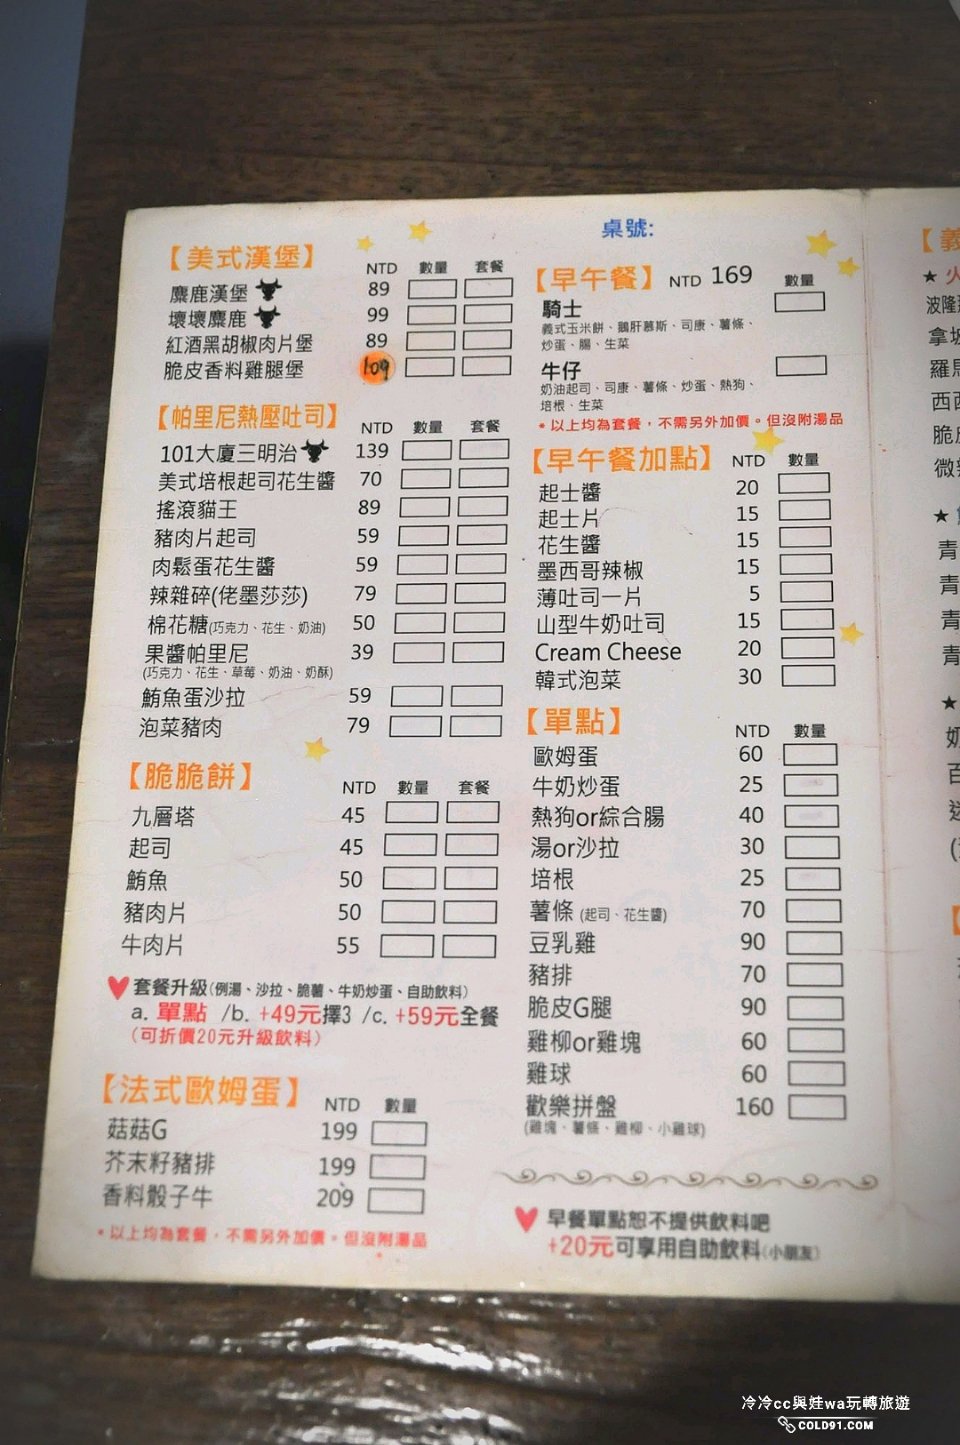 桌號:
【美式漢堡】
NTD 數量 套餐
麋鹿漢堡 89
壞壞麋鹿 99
紅酒黑胡椒肉片堡 89
脆皮香料雞腿堡 109
【帕里尼熱壓吐司】
NTD 數量 套餐
101大廈三明治 139
美式培根起司花生醬 70
搖滾貓王 89
豬肉片起司 59
肉鬆蛋花生醬 59
辣雜碎(佬墨莎莎) 79
棉花糖(巧克力、花生、奶油) 50
果醬帕里尼 39
(巧克力、花生、草莓、奶油、奶酥)
鮪魚蛋沙拉 59
泡菜豬肉 79
【脆脆餅】
NTD 數量 套餐
九層塔 45
起司 45
鮪魚 50
豬肉片 50
牛肉片 55
套餐升級(例湯、沙拉、脆薯、牛奶炒蛋、自助飲料)
a. 單點 /b. +49元擇3 /c. +59元全餐
(可折價20元升級飲料)
【法式歐姆蛋】
NTD 數量
菇菇G 199
芥末籽豬排 199
香料骰子牛 209
*以上均為套餐，不需另外加價。但沒附湯品
【早午餐】 NTD 169 數量
騎士
義式玉米餅、鵝肝慕斯、司康、薯條、
炒蛋、腸、生菜
牛仔
奶油起司、司康、薯條、炒蛋、熱狗、
培根、生菜
*以上均為套餐，不需另外加價。但沒附湯品
【早午餐加點】 NTD 數量
起士醬 20
起士片 15
花生醬 15
墨西哥辣椒 15
薄吐司一片 5
山型牛奶吐司 15
Cream Cheese 20
韓式泡菜 30
【單點】 NTD 數量
歐姆蛋 60
牛奶炒蛋 25
熱狗or綜合腸 40
湯or沙拉 30
培根 25
薯條 (起司、花生醬) 70
豆乳雞 90
豬排 70
脆皮G腿 90
雞柳or雞塊 60
雞球 60
歡樂拼盤 160
(雞塊、薯條、雞柳、小雞球)
早餐單點恕不提供飲料吧
+20元可享用自助飲料(小朋友)
【義
★ 火
波隆
拿坡
羅馬
西西
脆皮
微辣
★
青
青
青
青
★
奶
百
冷冷cc與娃wa玩轉旅遊
COLD91.COM